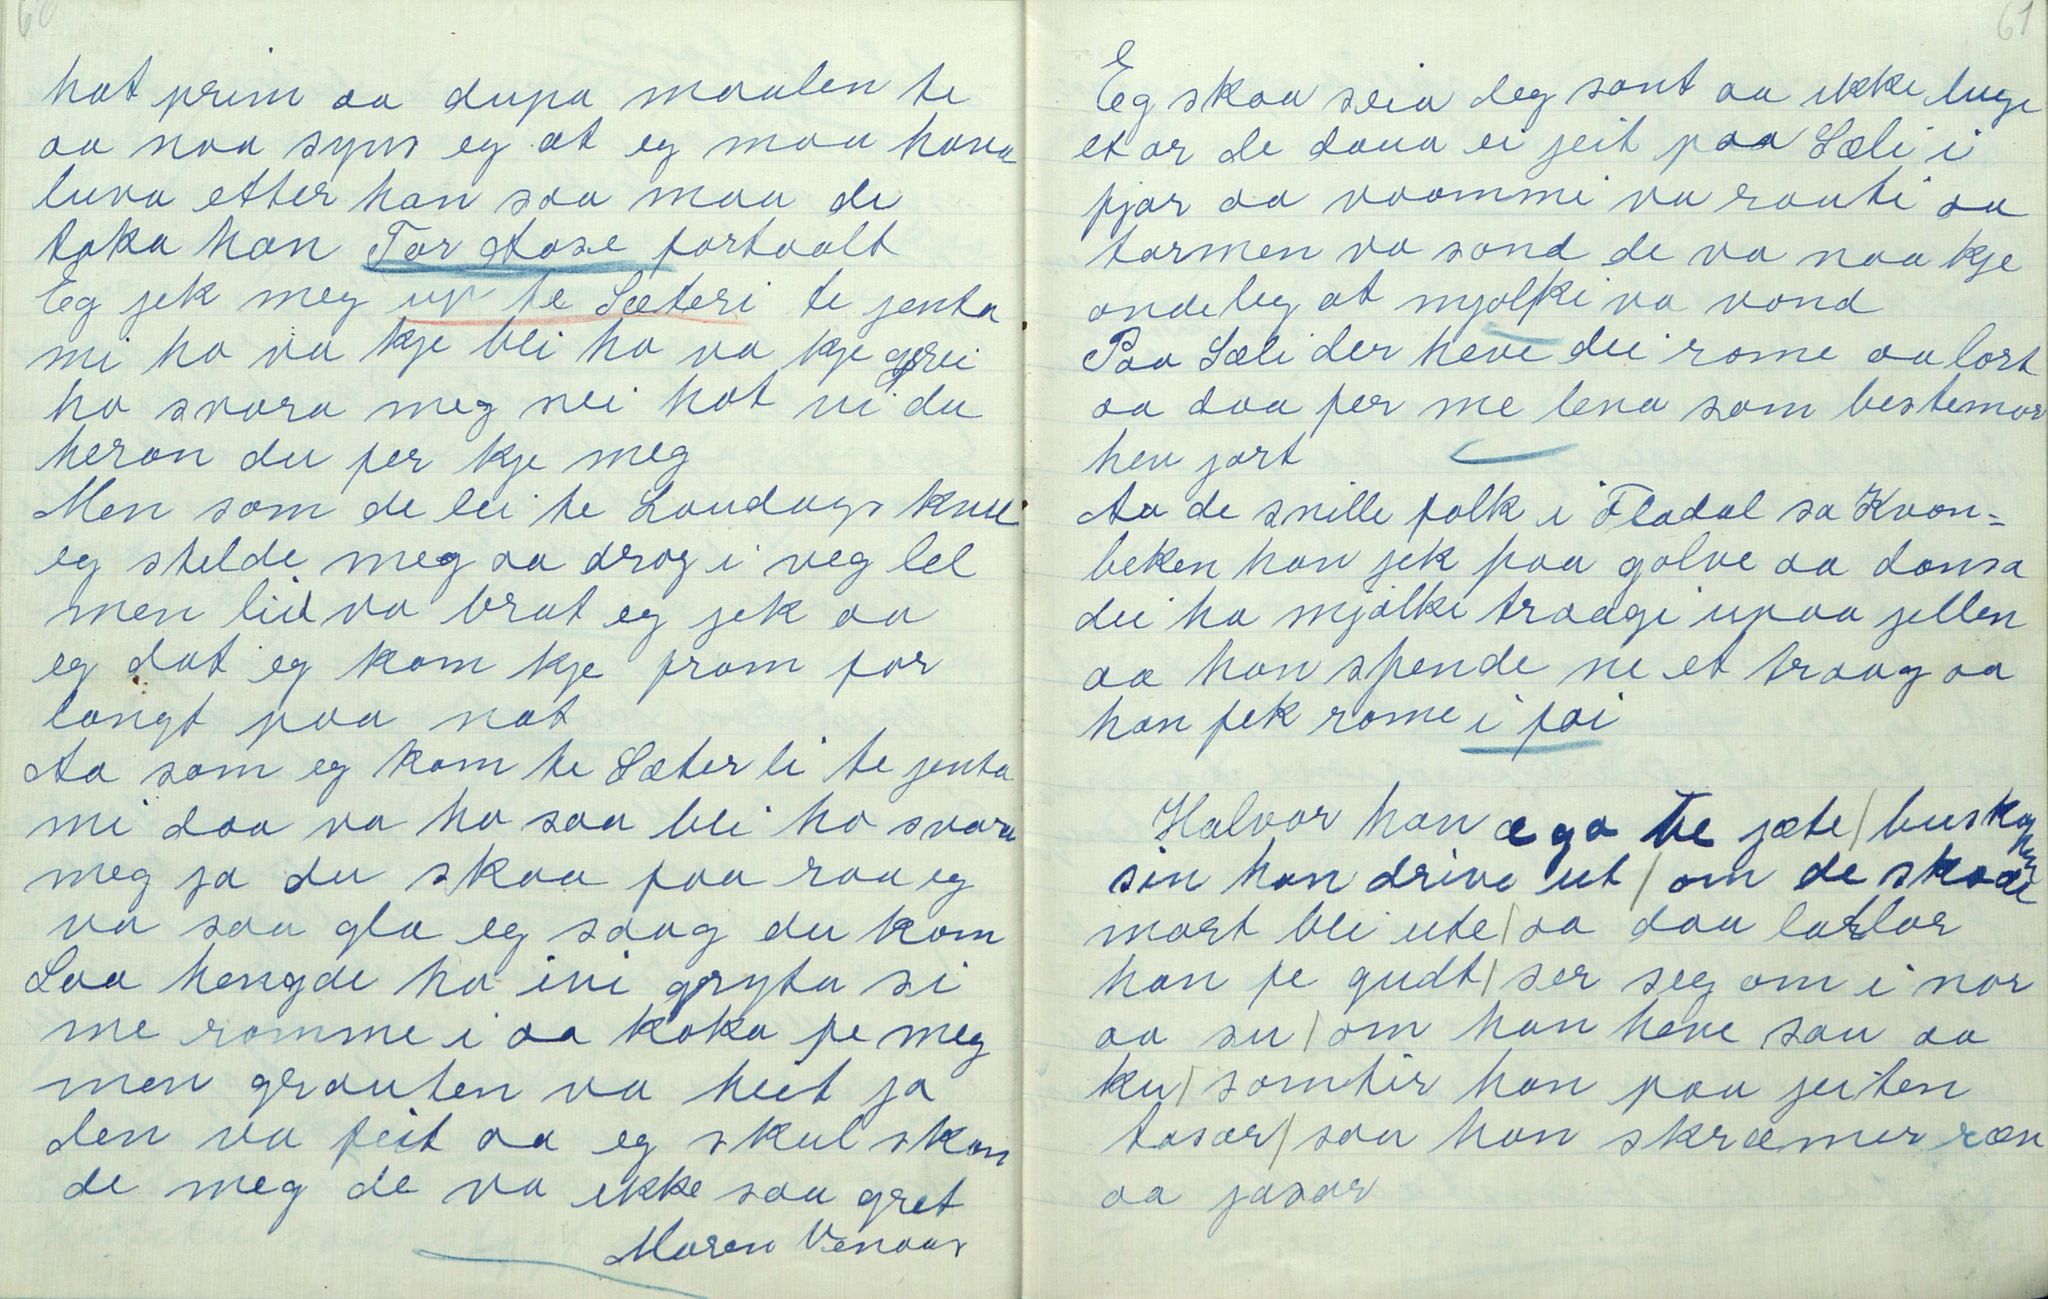 60
hat prim aa dupa maalen te
aa naa syns eg at eg maa hava
luva etter han saa maa de
taka han Tor Aase fortaalt
Eg jek meg up te Sæteri te jenta
mi ho va kje bli ho va kje grei
ho svara meg nei hat vi du
heran du fer kje meg
Men som de lei te Laudags kvell
eg stelde meg aa drog i veg lel
men lid va brat eg jek aa
eg dat eg kom kje fram for
langt paa nat
Aa som eg kom te Sæterli te jenta
mi daa va ho saa bli ho svara
meg ja du skaa faa raa eg
va saa gla eg saag du kom
Saa hengde ho ivi gryta si
me romme i aa koka fe meg
men grauten va heit ja
den va feit aa eg skul skon
de meg de va ikke saa gret
Maren Venaas
61
Eg skaa seia deg sant aa ikke luge
et or de daua ei jeit paa Sæli i
fjor aa vaammi va rauti aa
tarmen va sond de va naa kje
andeleg at mjølki va vond
Paa Sæli der heve dei rome aa lort
aa daa fer me leva som bestemor
hev jort
Aa de snille folk i Fladal sa Kvan=
beken han jek paa golve aa dansa
dei ha mjølke traagi upaa jellen
aa han spende ne et traag aa
han fek rome i fai
Halvor han æ go te jæte / buskapen
sin han drive ut / om de skaae
mørt bli ute / aa daa larlar
han fe gudt / ser seg om i nor
aa su / om han heve sau aa
ku / somtir han paa jeiten
tasar / saa han skræmer ræv
aa jasar